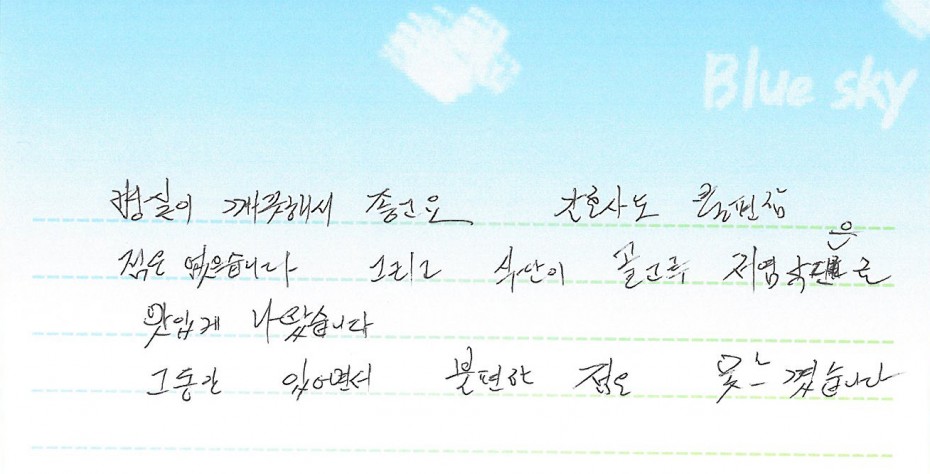 Blue sky
병실이 깨끗해서 좋고요 간호사도 큰 편참
점은 없읍습니다 그리고 식단이 골고루 저염식단은로
맛있게 나왔습니다
그동간 있으면서 불편한 점은 못 느꼈습니다